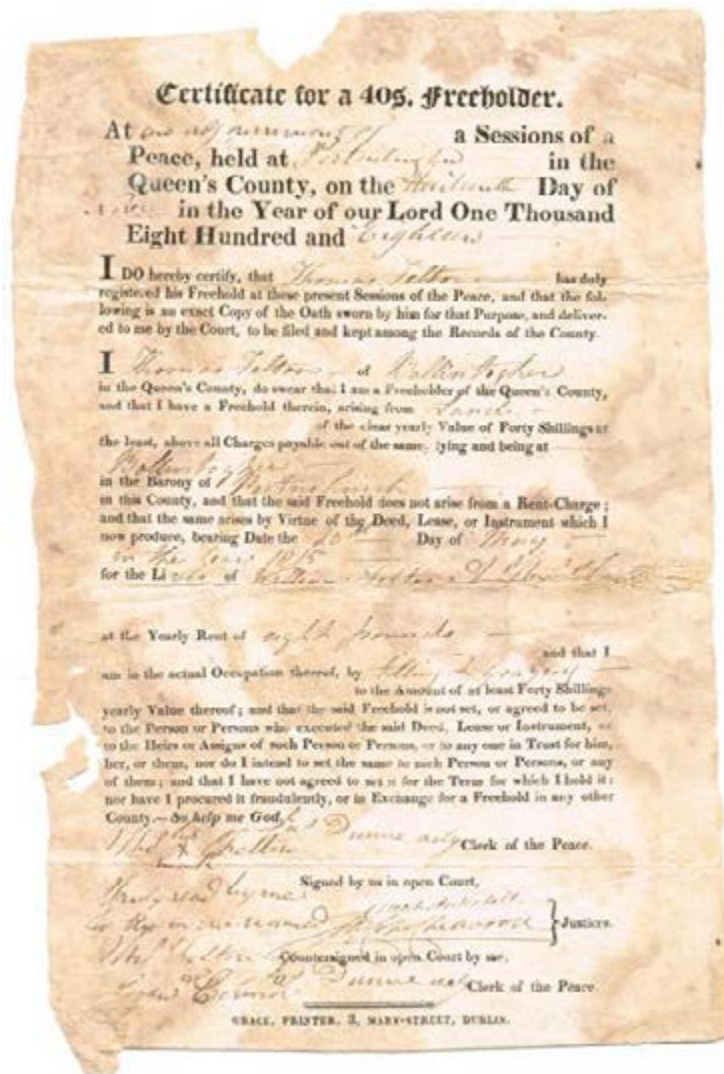 Certificate for a 40s. Freeholder.
At an adjournment of a Sessions of a
Peace, held at in the
Queen's County, on the Day of
in the Year of our Lord One Thousand
Eight Hundred and Eighteen
I DO hereby certify, that Thomas has duly
registered his Freehold at these present Sessions of the Peace, and that the fol-
lowing is an exact Copy of the Oath sworn by him for that Purpose, and deliver-
ed to me by the Court, to be filed and kept among the Records of the County.
I Thomas of
in the Queen's County, do swear that I am a Freeholder of the Queen's County,
and that I have a Freehold therein, arising from Land
of the clear yearly Value of Forty Shillings at
the least, above all Charges payable out of the same, lying and being at
in the Barony of
in this County, and that the said Freehold does not arise from a Rent-Charge;
and that the same arises by Virtue of the Deed, Lease, or Instrument which I
now produce, bearing Date the 20th Day of May
in the year 1815
for the Lives of
at the Yearly Rent of eight pounds
and that I
am in the actual Occupation thereof, by tilling & grazing
to the Amount of at least Forty Shillings
yearly Value thereof; and that the said Freehold is not set, or agreed to be set,
to the Person or Persons who executed the said Deed, Lease or Instrument, or
to the Heirs or Assigns of such Person or Persons, or to any one in Trust for him,
her, or them, nor do I intend to set the same to such Person or Persons, or any
of them; and that I have not agreed to set it for the Term for which I hold it:
nor have I procured it fraudulently, or in Exchange for a Freehold in any other
County.—So help me God,
his Dunne Clerk of the Peace.
X
mark
Signed by us in open Court,
Truly read by me
Justices.
Countersigned in open Court by me,
Dunne Clerk of the Peace.
GRACE, PRINTER, 3, MARY-STREET, DUBLIN.